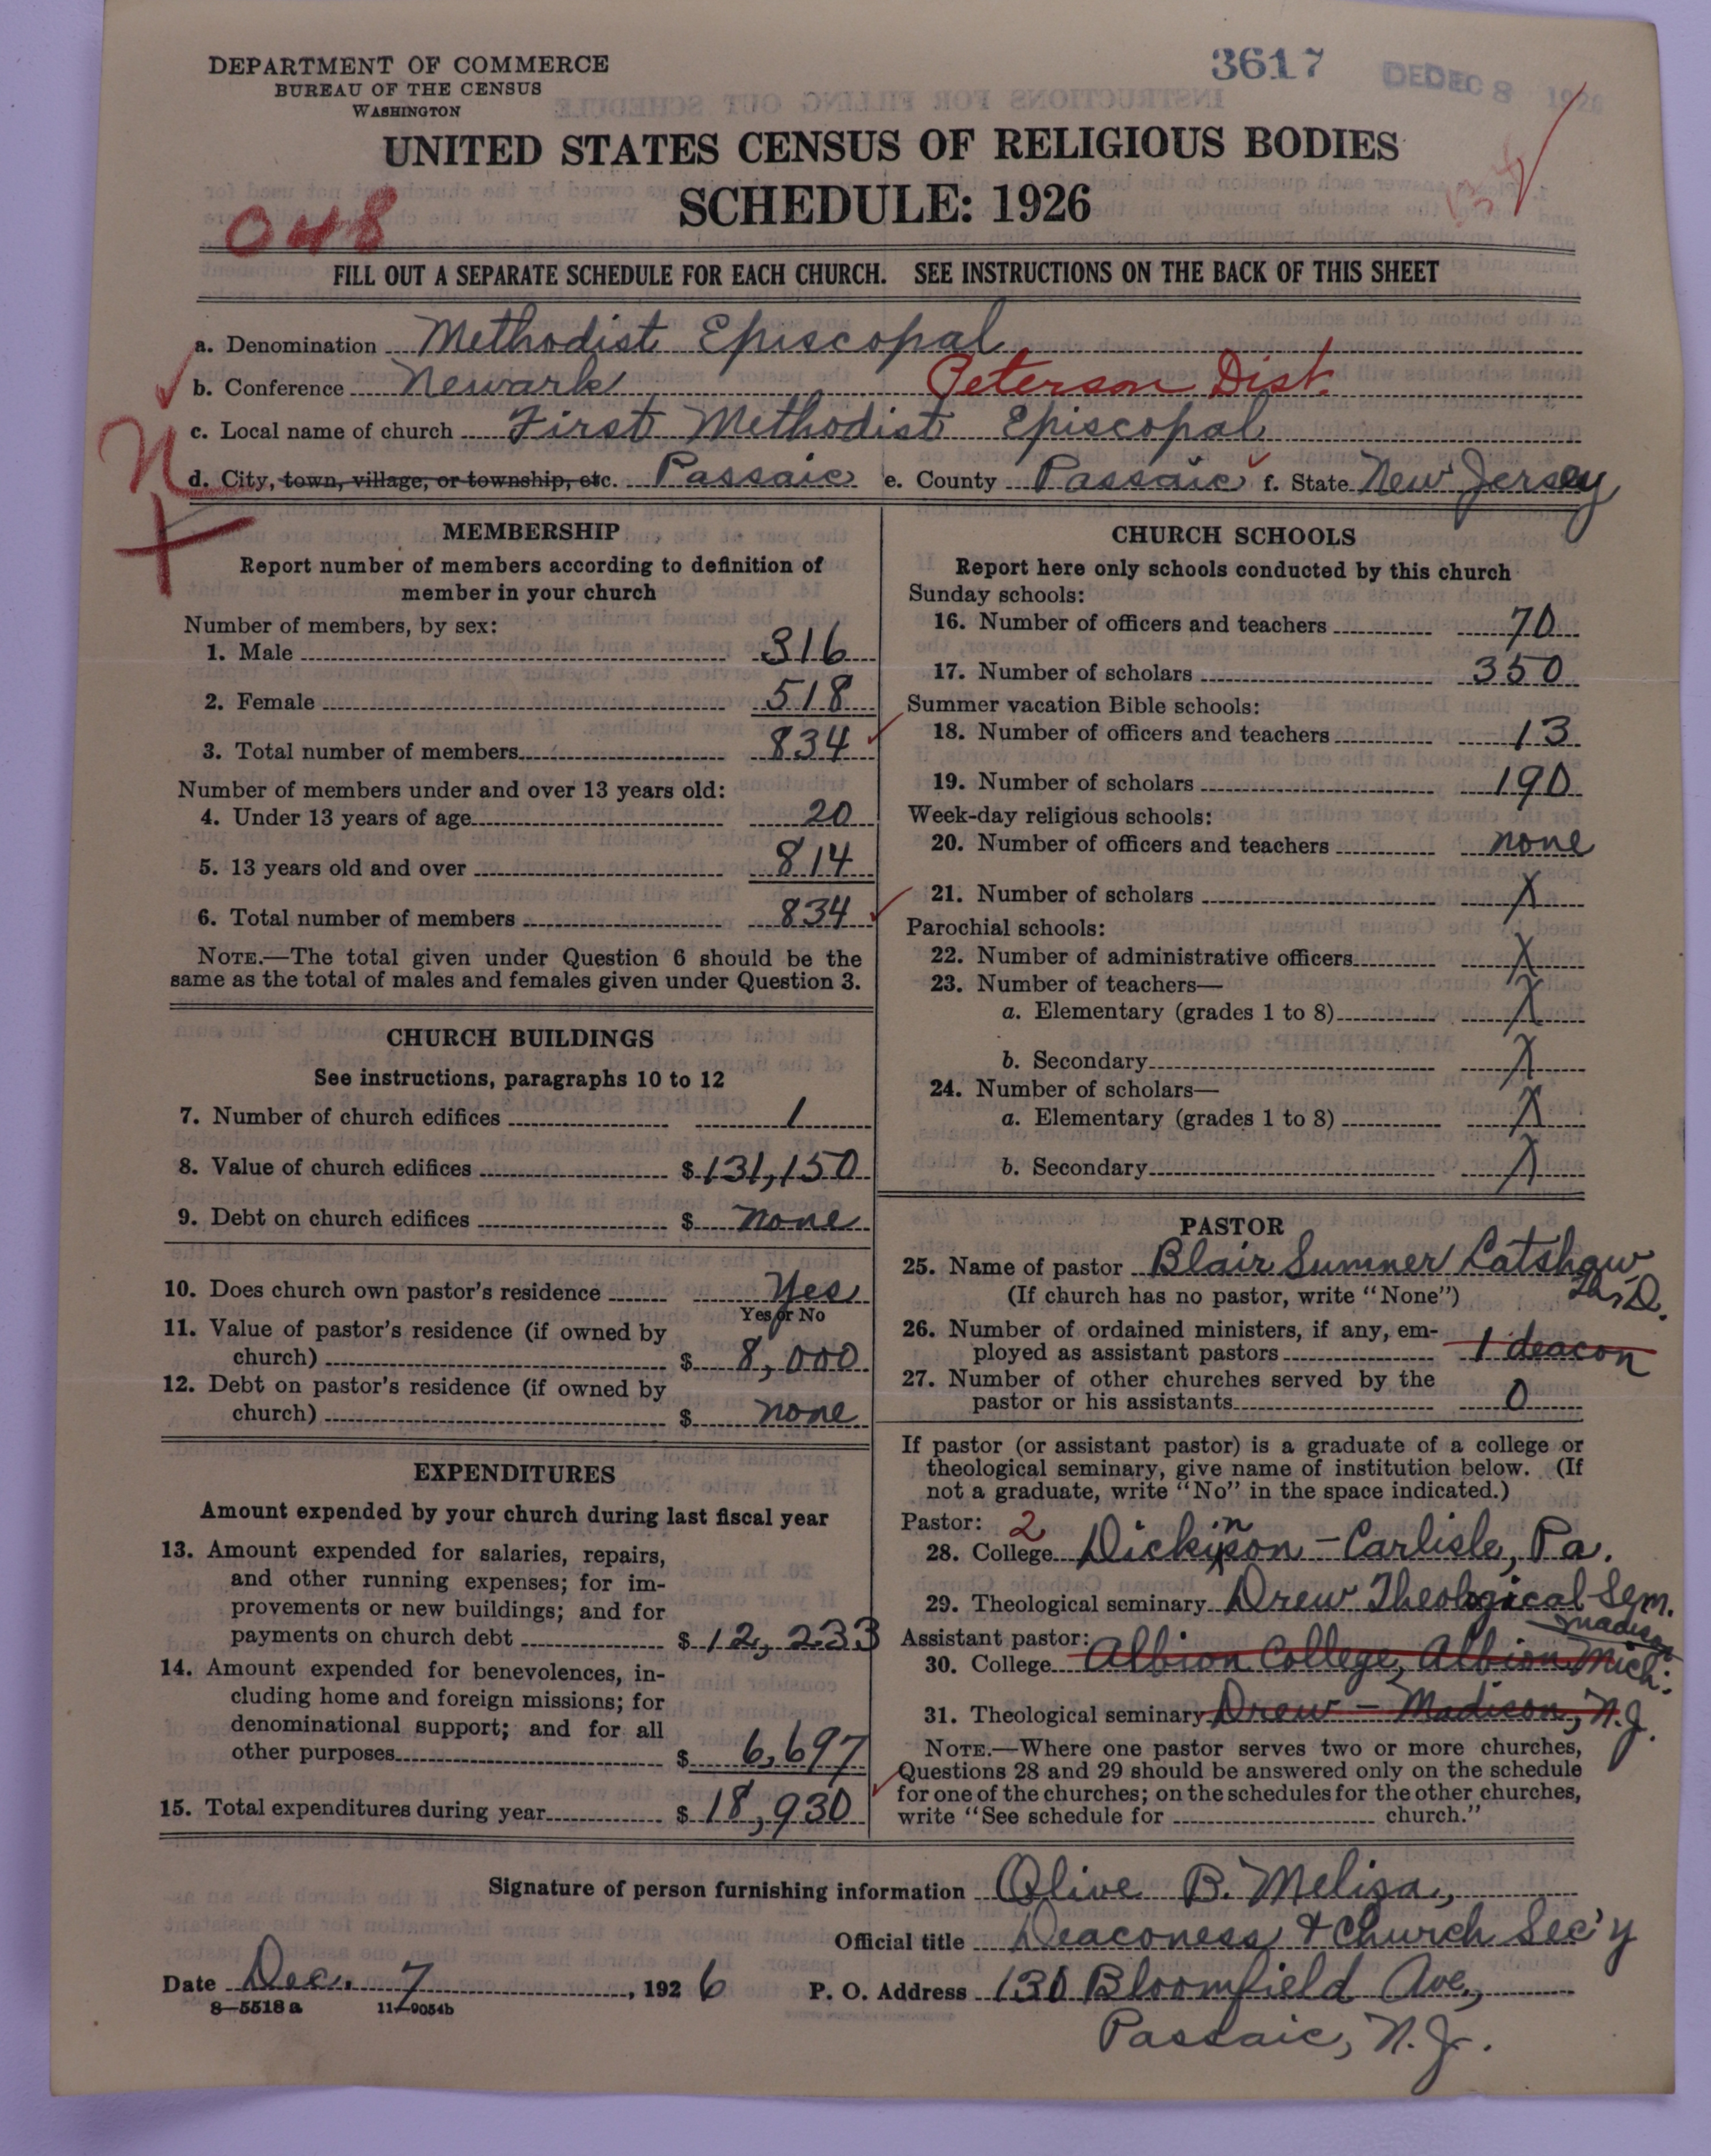 DEPARTMENT OF COMMERCE
BUREAU OF THE CENSUS
WASHINGTON
3617
DEC 8 1926
UNITED STATES CENSUS OF RELIGIOUS BODIES
SCHEDULE: 1926
048
FILL OUT A SEPARATE SCHEDULE FOR EACH CHURCH. SEE INSTRUCTIONS ON THE BACK OF THIS SHEET
a. Denomination Methodist Episcopal
b. Conference Newark Peterson Dist.
c. Local name of church First Methodist Episcopal
N
d. City, town, village, or township, etc. Passaic e. County Passaic f. State New Jersey
MEMBERSHIP
Report number of members according to definition of
member in your church
Number of members, by sex:
1. Male 316
2. Female 518
3. Total number of members 834
Number of members under and over 13 years old:
4. Under 13 years of age 20
5. 13 years old and over 814
6. Total number of members 834
NOTE.—The total given under Question 6 should be the
same as the total of males and females given under Question 3.
CHURCH BUILDINGS
See instructions, paragraphs 10 to 12
7. Number of church edifices 1
8. Value of church edifices $ 131,150
9. Debt on church edifices $ none
10. Does church own pastor's residence Yes
Yes or No
11. Value of pastor's residence (if owned by
church) $ 8,000
12. Debt on pastor's residence (if owned by
church) $ none
EXPENDITURES
Amount expended by your church during last fiscal year
13. Amount expended for salaries, repairs,
and other running expenses; for im-
provements or new buildings; and for
payments on church debt $ 12,233
14. Amount expended for benevolences, in-
cluding home and foreign missions; for
denominational support; and for all
other purposes $ 6,697
15. Total expenditures during year $ 18,930
CHURCH SCHOOLS
Report here only schools conducted by this church
Sunday schools:
16. Number of officers and teachers 70
17. Number of scholars 350
Summer vacation Bible schools:
18. Number of officers and teachers 13
19. Number of scholars 190
Week-day religious schools:
20. Number of officers and teachers none
21. Number of scholars X
Parochial schools:
22. Number of administrative officers X
23. Number of teachers—
a. Elementary (grades 1 to 8) X
b. Secondary X
24. Number of scholars—
a. Elementary (grades 1 to 8) X
b. Secondary X
PASTOR
25. Name of pastor Blair Sumner Latshaw
(If church has no pastor, write "None") Ph.D.
26. Number of ordained ministers, if any, em-
ployed as assistant pastors 1 deacon
27. Number of other churches served by the
pastor or his assistants 0
If pastor (or assistant pastor) is a graduate of a college or
theological seminary, give name of institution below. (If
not a graduate, write "No" in the space indicated.)
Pastor: 2
28. College Dickinson - Carlisle, Pa.
29. Theological seminary Drew Theological Sem.
Madison
Assistant pastor:
30. College Albion College, Albion Mich.
31. Theological seminary Drew - Madison, N.J.
NOTE.—Where one pastor serves two or more churches,
Questions 28 and 29 should be answered only on the schedule
for one of the churches; on the schedules for the other churches,
write "See schedule for church."
Signature of person furnishing information Olive B. Meliza,
Official title Deaconess & Church Sec'y
Date Dec. 7, 1926 P. O. Address 130 Bloomfield Ave,
8—5518 a 11—9054b
Passaic, N.J.